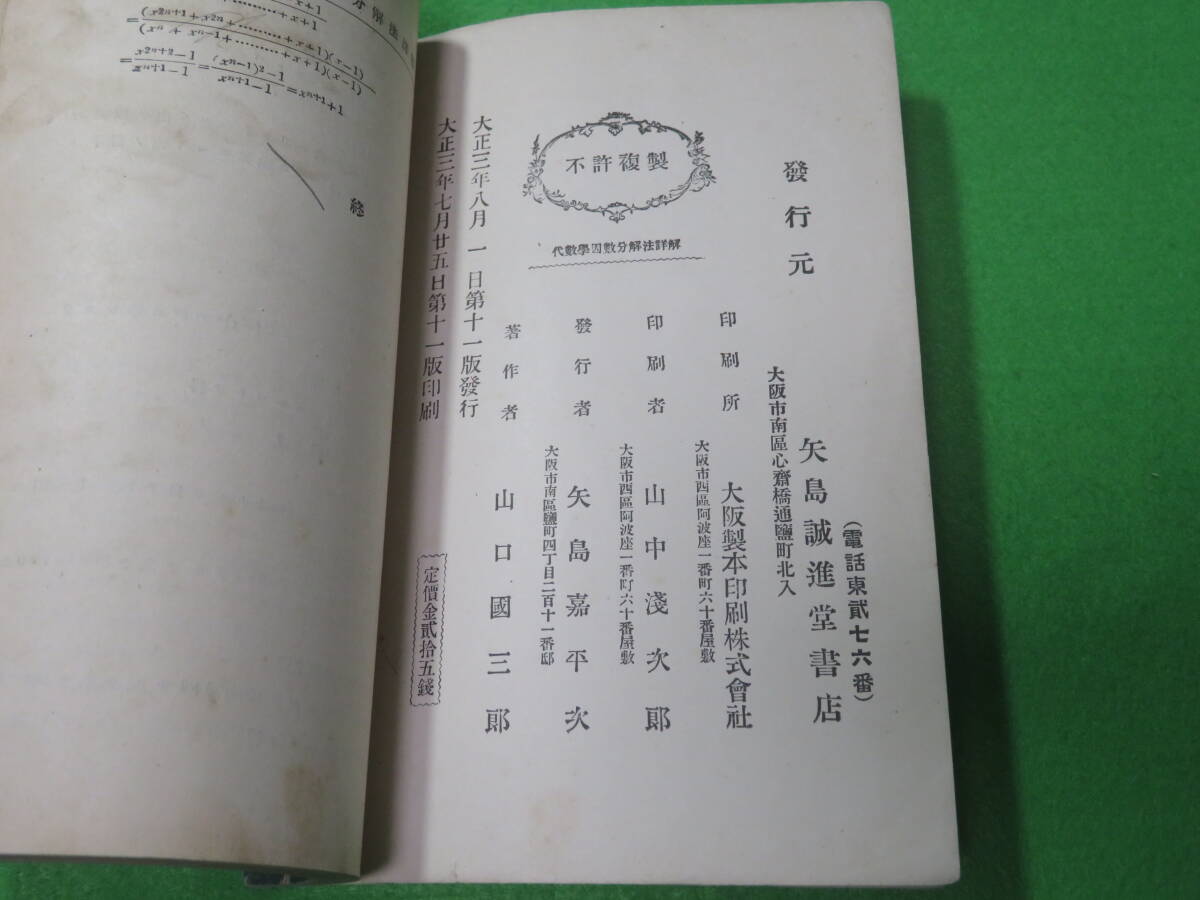 分解法詳
x+1
⋯⋯⋯+x+1
=(x²ⁿ⁺¹+x²ⁿ+⋯⋯⋯+x+1)(x−1)
(xⁿ+xⁿ⁻¹+⋯⋯⋯+x+1)(x−1)
=x²ⁿ⁺²−1/xⁿ⁺¹−1=(xⁿ⁻¹)²−1/xⁿ⁺¹−1=xⁿ⁺¹+1
終
不許複製
代數學因數分解法詳解
大正三年七月廿五日第十一版印刷
大正三年八月一日第十一版發行
定價金貳拾五錢
著作者 山口國三郎
大阪市南區鹽町四丁目二百十一番邸
發行者 矢島嘉平次
大阪市西區阿波座一番町六十番屋敷
印刷者 山中淺次郎
大阪市西區阿波座一番町六十番屋敷
印刷所 大阪製本印刷株式會社
大阪市南區心齋橋通鹽町北入
發行元 矢島誠進堂書店
(電話東貳七六番)